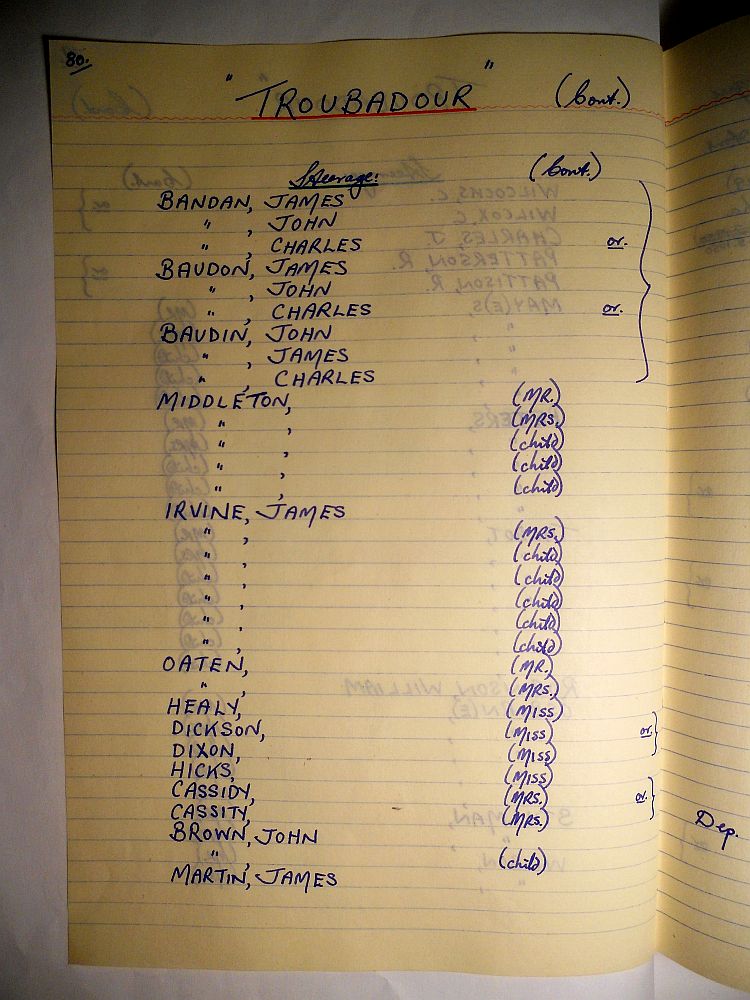 80.
"TROUBADOUR" (Cont.)
Steerage: (Cont.)
BANDAN, JAMES
" , JOHN
" , CHARLES or.
BAUDON, JAMES
" , JOHN
" , CHARLES or.
BAUDIN, JOHN
" , JAMES
" , CHARLES
MIDDLETON, (MR.)
" , (MRS.)
" , (child)
" , (child)
" , (child)
IRVINE, JAMES
" , (MRS.)
" , (child)
" , (child)
" , (child)
" , (child)
" , (child)
OATEN, (MR.)
" , (MRS.)
HEALY, (MISS)
DICKSON, (MISS) or.
DIXON, (MISS)
HICKS, (MISS)
CASSIDY, (MRS.) or.
CASSITY, (MRS.)
BROWN, JOHN
" , (child)
MARTIN, JAMES
Dep.